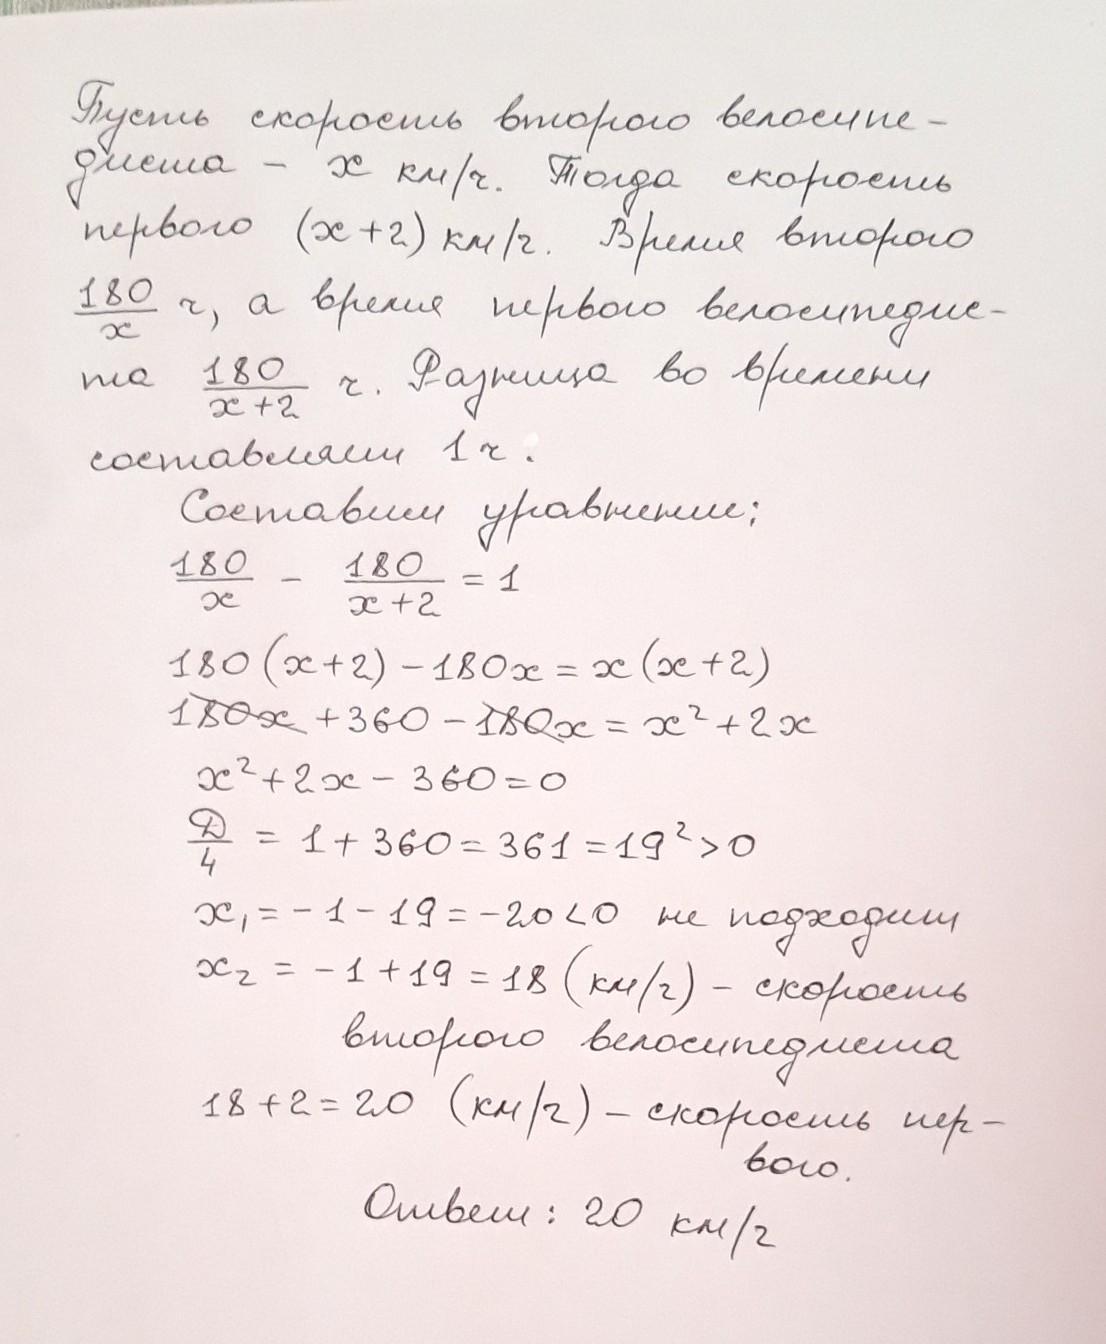 Пусть скорость второго велосипе-
диста – x км/ч. Тогда скорость
первого (x+2) км/ч. Время второго
180/x ч, а время первого велосипедис-
та 180/(x+2) ч. Разница во времени
составляет 1 ч.
Составим уравнение:
180/x - 180/(x+2) = 1
180(x+2) - 180x = x(x+2)
180x + 360 - 180x = x² + 2x
x² + 2x - 360 = 0
D/4 = 1 + 360 = 361 = 19² > 0
x₁ = -1 - 19 = -20 < 0 не подходит
x₂ = -1 + 19 = 18 (км/ч) – скорость
второго велосипедиста
18 + 2 = 20 (км/ч) – скорость пер-
вого.
Ответ: 20 км/ч